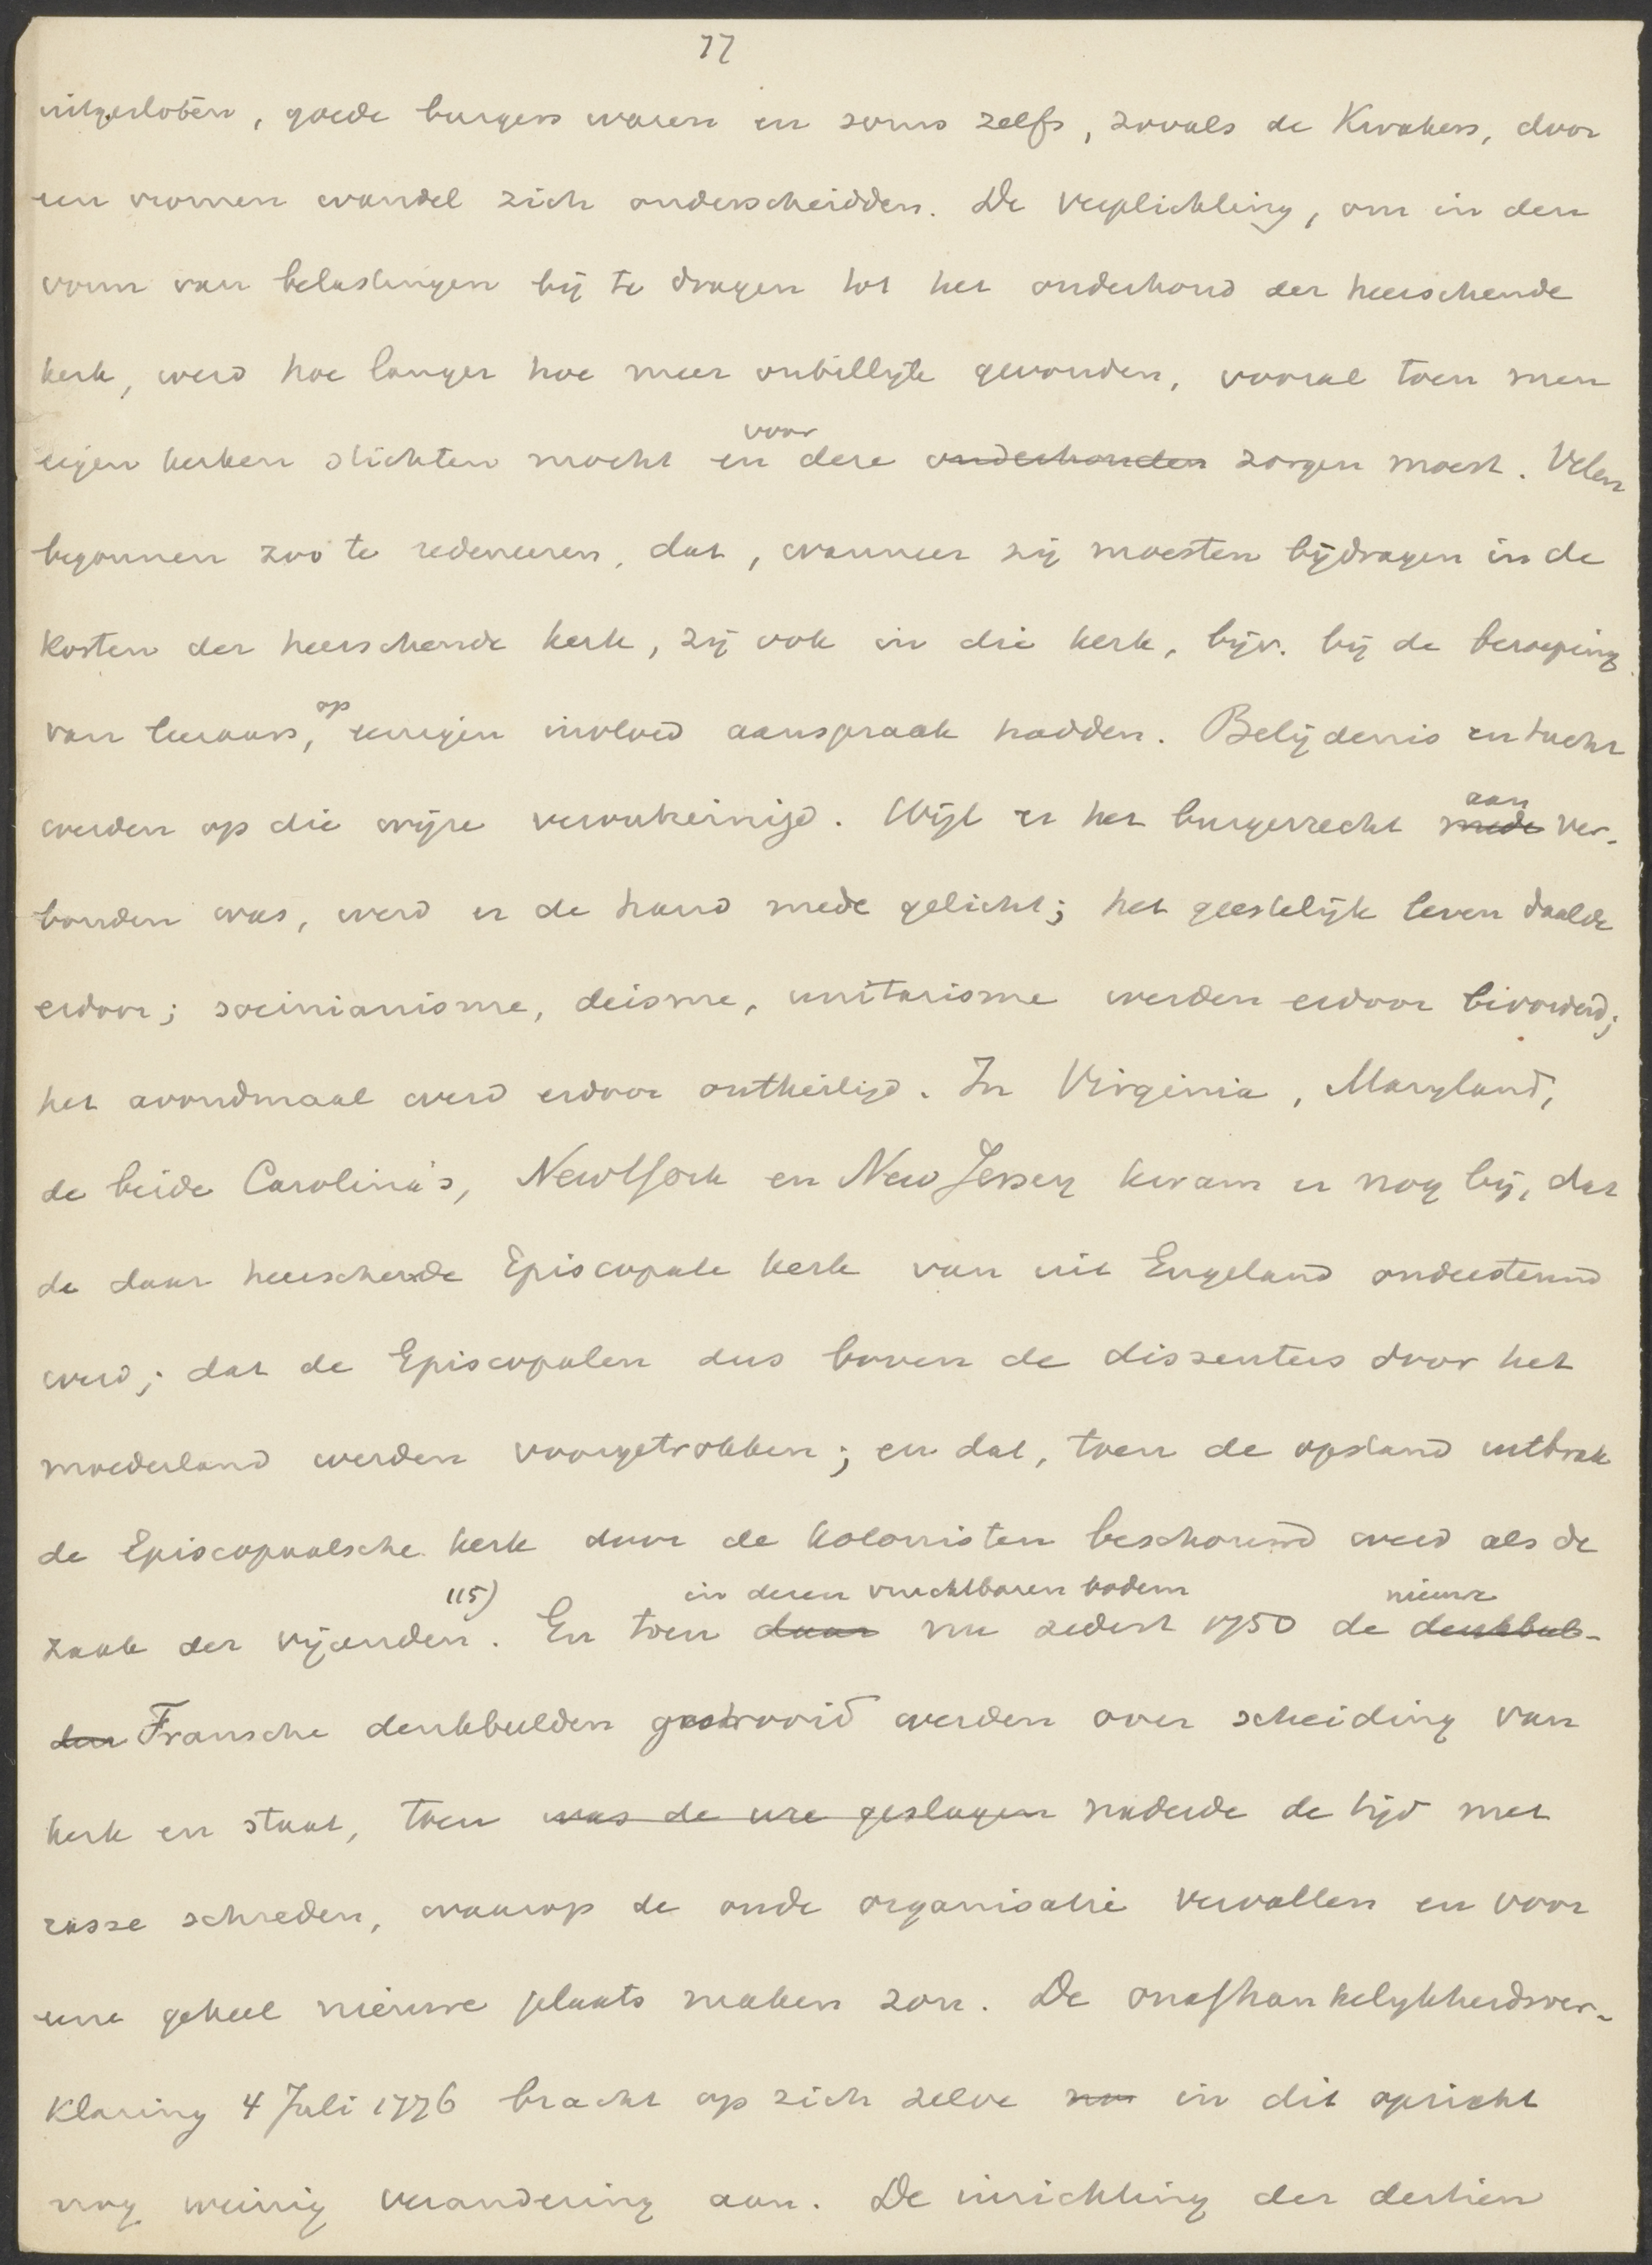 77
uitgesloten, goede burgers waren en soms zelfs, zooals de Kwakers, door
een vromen wandel zich onderscheidden. De verplichting, om in den
vorm van belastingen bij te dragen tot het onderhoud der heerschende
kerk, werd hoe langer hoe meer onbillijk gevonden, vooral toen men
voor
eigen kerken stichten mocht en deze onderhouden zorgen moest. Velen
begonnen zoo te redeneeren, dat, wanneer zij moesten bijdragen in de
kosten der heerschende kerk, zij ook in die kerk, bijv. bij de beroeping
op
van leeraars, eenigen invloed aanspraak hadden. Belijdenis en tucht
aan
werden op die wijze veronreinigd. Wijl er het burgerrecht mede ver-
bonden was, werd er de hand mede gelicht; het geestelijk leven daalde
erdoor; socinianisme, deisme, unitarisme werden erdoor bevorderd;
het avondmaal werd erdoor ontheiligd. In Virginia, Maryland,
de beide Carolina's, New York en New Jersey kwam er nog bij, dat
de daar heerschende Episcopale kerk van uit Engeland ondersteund
werd; dat de Episcopalen dus boven de dissenters door het
moederland werden voorgetrokken; en dat, toen de opstand uitbrak
de Episcopaalsche kerk door de kolonisten beschouwd werd als de
115) in dezen vruchtbaren bodem nieuwe
zaak der vijanden. En toen daar nu sedert 1750 de denkbeel-
den Fransche denkbeelden gestrooid werden over scheiding van
kerk en staat, toen was de ure geslagen naderde de tijd met
rasse schreden, waarop de oude organisatie vervallen en voor
eene geheel nieuwe plaats maken zou. De onafhankelijkheidsver-
klaring 4 Juli 1776 bracht op zich zelve in dit opzicht
nog weinig verandering aan. De inrichting der dertien